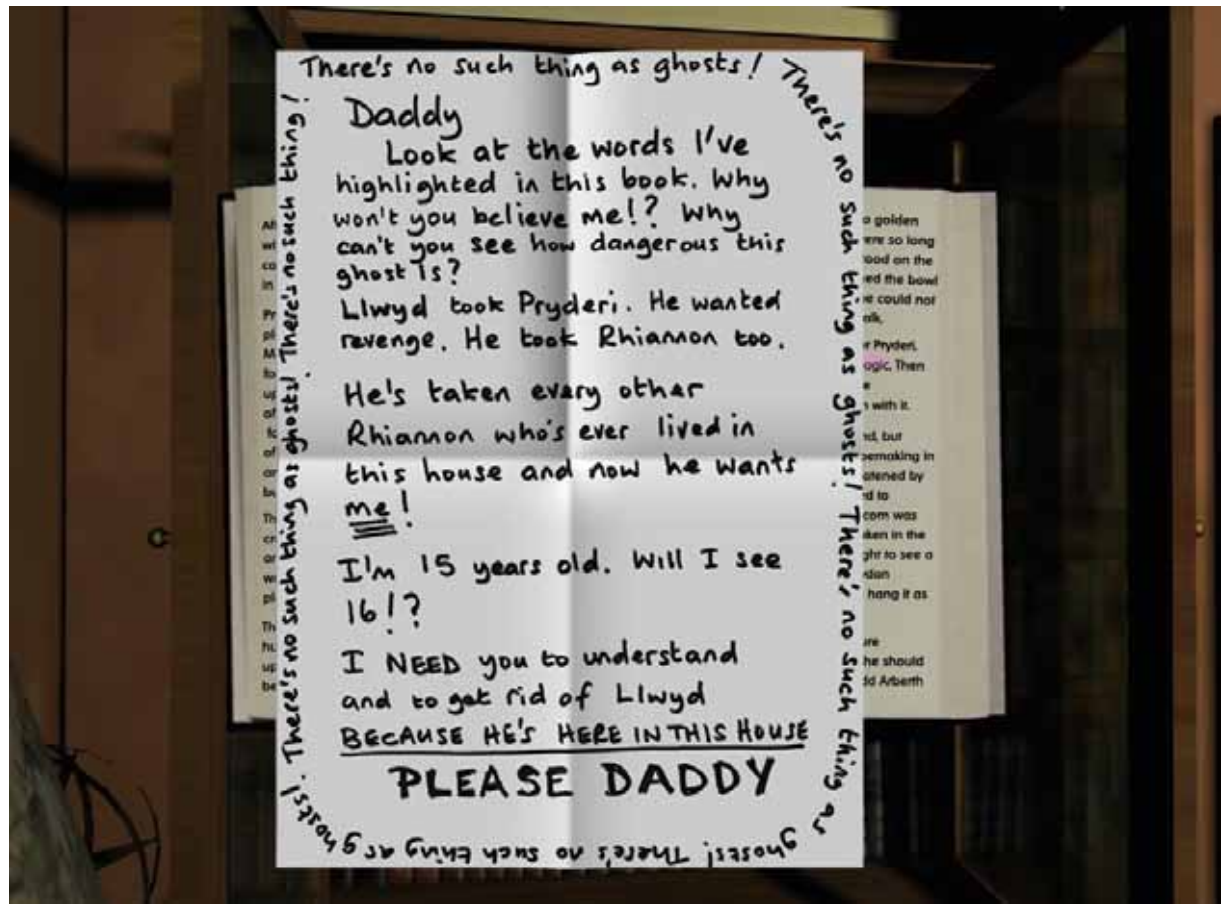 There's no such thing as ghosts! There's no such thing as ghosts! There's no such thing as ghosts! There's no such thing as ghosts! There's no such thing as ghosts! There's no such thing!
Daddy
Look at the words I've
highlighted in this book. Why
won't you believe me!? Why
can't you see how dangerous this
ghost is?
Llwyd took Pryderi. He wanted
revenge. He took Rhiannon too.
He's taken every other
Rhiannon who's ever lived in
this house and now he wants
me!
I'm 15 years old. Will I see
16!?
I NEED you to understand
and to get rid of Llwyd
BECAUSE HE'S HERE IN THIS HOUSE
PLEASE DADDY
golden
so long
on the
the bowl
could not
Pryderi,
Then
with it.
but
in
by
to
was
in the
to see a
hang it as
he should
Arberth